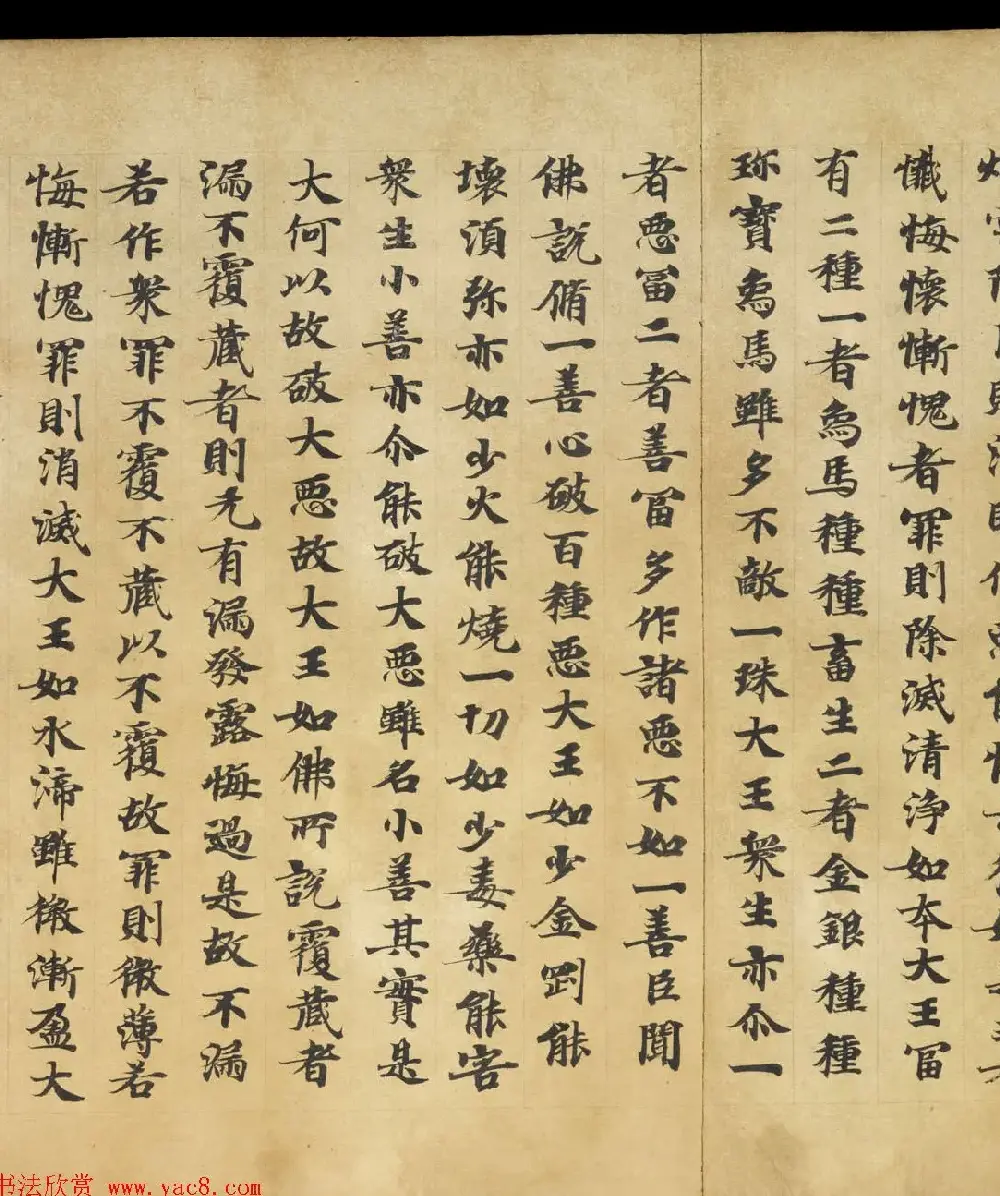 懺悔懷慚愧者罪則除滅清淨如本大王冨
有二種一者為馬種種畜生二者金銀種種
珎寶為馬雖多不敵一珠大王衆生亦尒一
者惡冨二者善冨多作諸惡不如一善臣聞
佛說脩一善心破百種惡大王如少金剛能
壞須弥亦如少火能燒一切如少毒藥能害
衆生小善亦尒能破大惡雖名小善其實是
大何以故破大惡故大王如佛所說覆藏者
漏不覆藏者則无有漏發露悔過是故不漏
若作衆罪不覆不藏以不覆故罪則微薄若
悔慚愧罪則消滅大王如水渧雖微漸盈大
书法欣赏 www.yac8.com